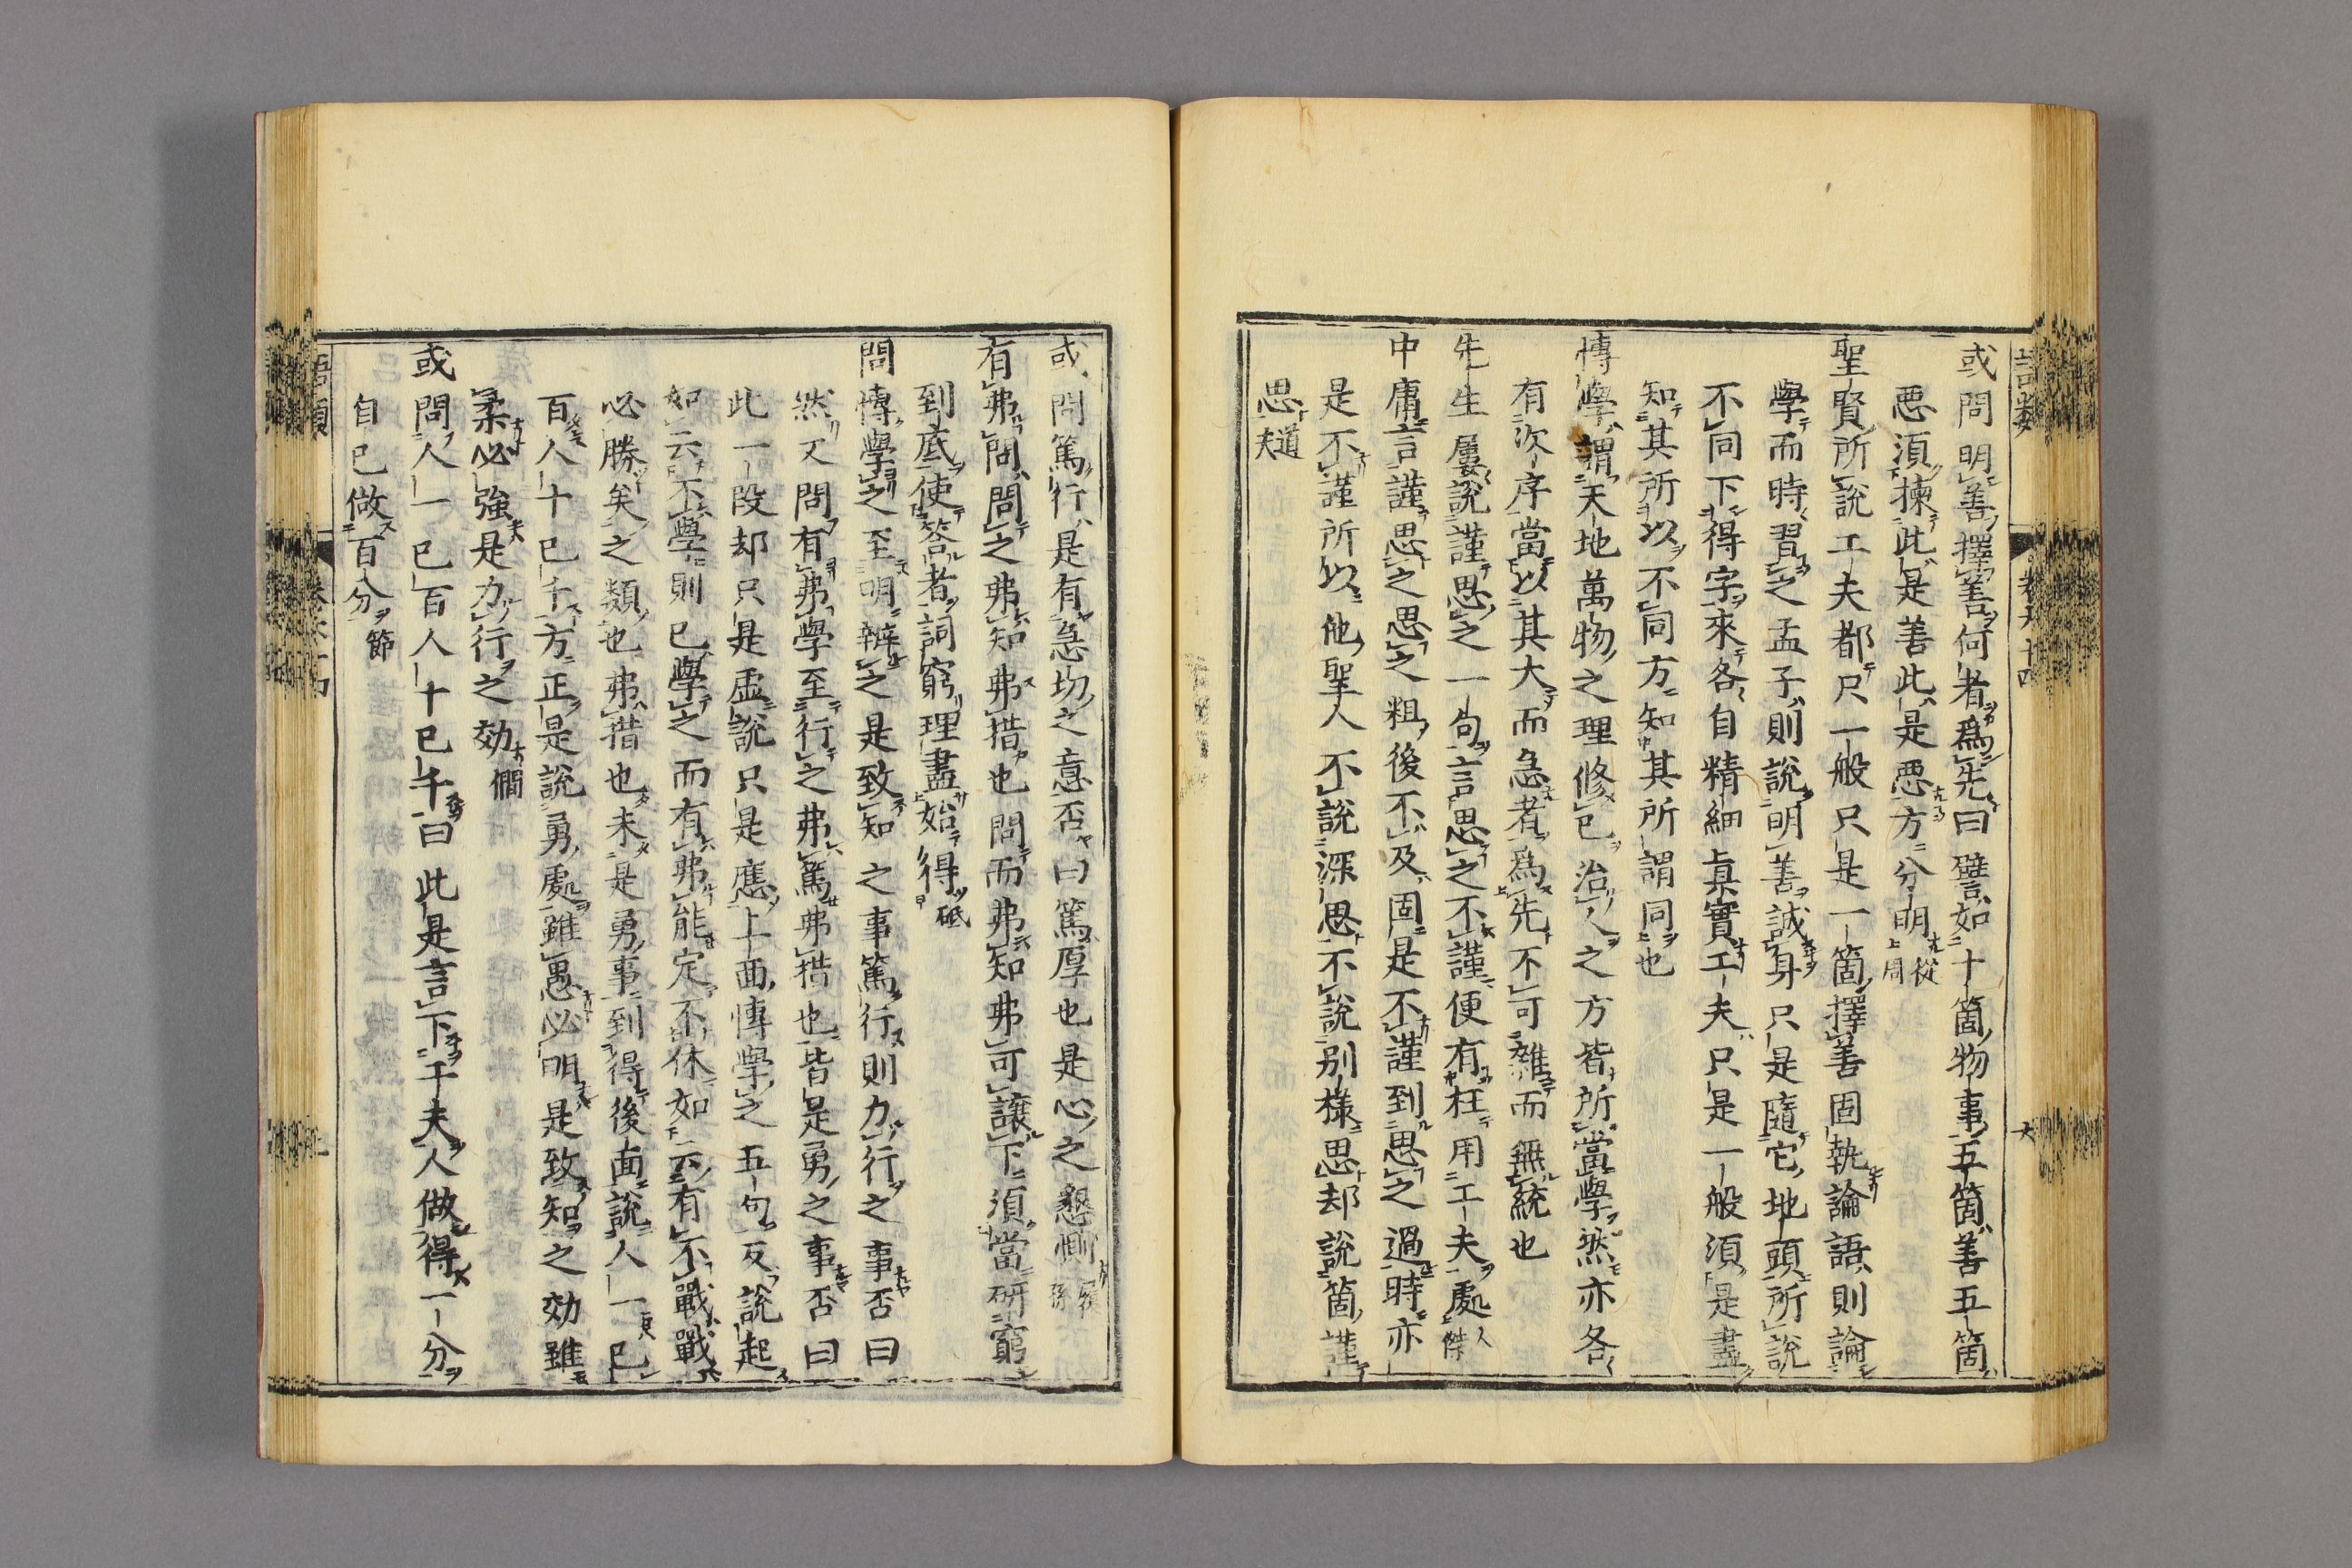 或問明善擇善何者爲先曰譬如十箇物事五箇善五箇
惡須揀此是善此是惡方分明從周
聖賢所說工夫都只一般只是一箇擇善固執論語則論
學而時習之孟子則說明善誠身只是隨它地頭所說
不同下得字來各自精細眞實工夫只是一般須是盡
知其所以不同方知其所謂同也
博學謂天地萬物之理修已治人之方皆所當學然亦各
有次序當以其大而急者爲先不可雜而無統也
先生屢說謹思之一句言思之不謹便有枉用工夫處人傑
中庸言謹思之思之粗後不及固是不謹到思之過時亦
是不謹所以他聖人不說深思不說别樣思却說箇謹
思道夫
或問篤行是有急切之意否曰篤厚也是心之懇惻
有弗問問之弗知弗措也問而弗知弗可讓下須當硏窮
到底使答者詞窮理盡始得砥
問博學之至明辨之是致知之事篤行則力行之事否曰
然又問有弗學至行之弗篤弗措也皆是勇之事否曰
此一段却只是虛說只是應上面博學之五句反說起
如云不學則已學之而有弗能定不休如云有不戰戰
必勝矣之類也弗措也未是勇事到得後面說人一已
百人十已千方正是說勇處雖愚必明是致知之効雖
柔必強是力行之効僩
或問人一已百人十已千曰此是言下工夫人做得一分
自已做百分節